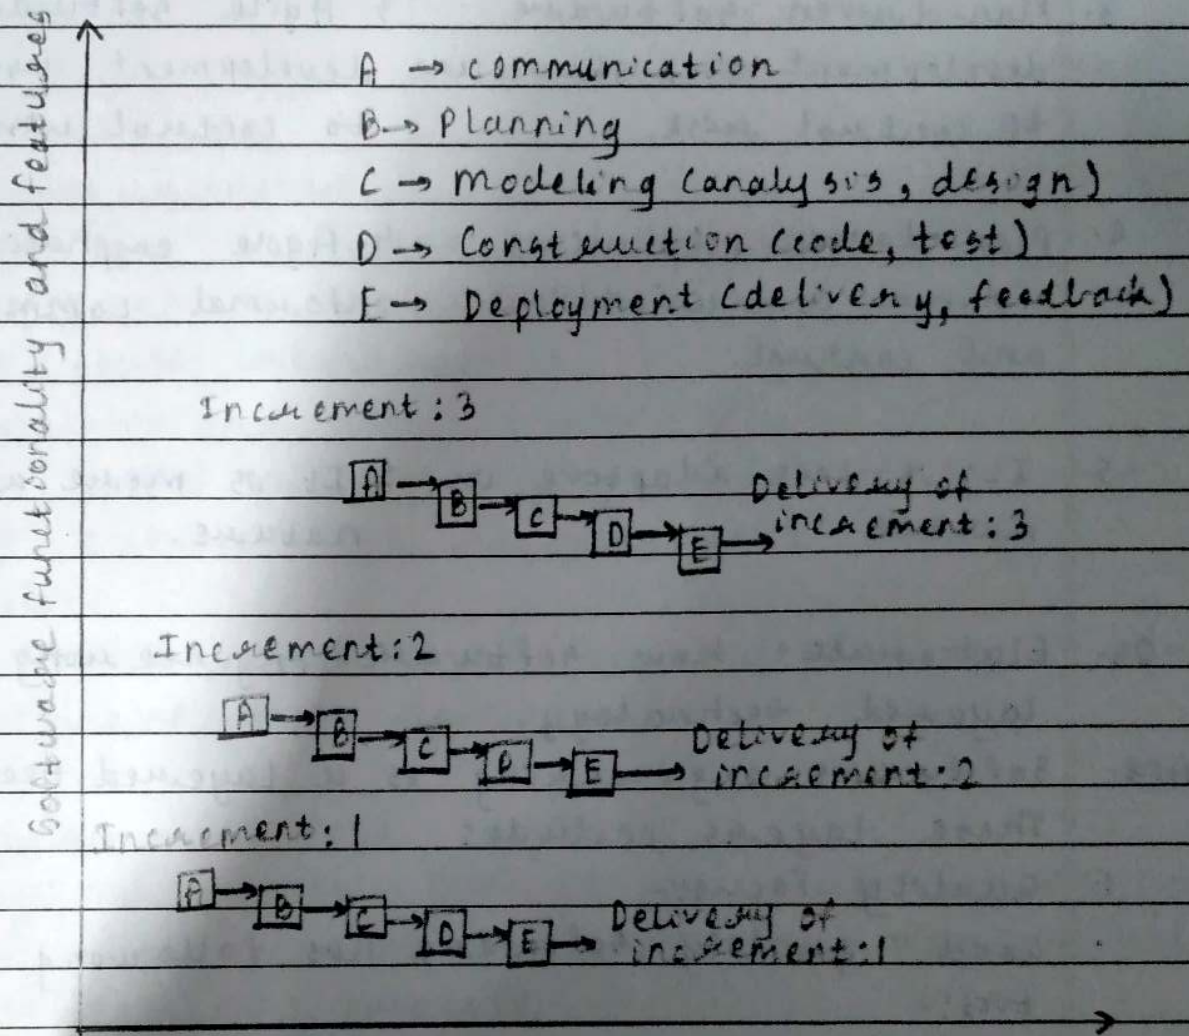 Software functionality and features
A → communication
B → Planning
C → modeling (analysis, design)
D → Construction (code, test)
E → Deployment (delivery, feedback)
Increment : 3
A → B → C → D → E → Delivery of
increment : 3
Increment : 2
A → B → C → D → E → Delivery of
increment : 2
Increment : 1
A → B → C → D → E → Delivery of
increment : 1